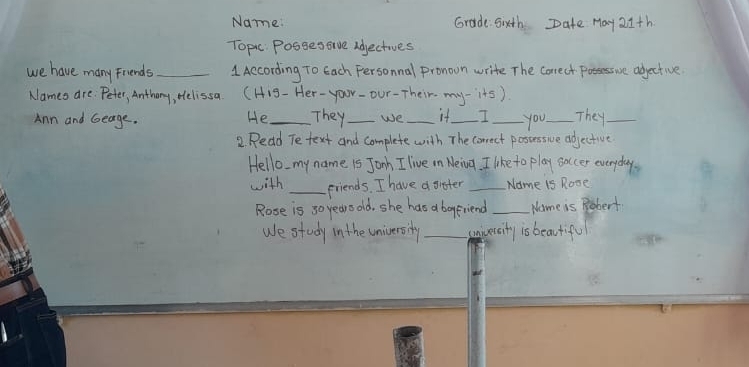 Name:
Grade: Sixth Date May 21th
Topic: Possessive Adjectives
1 According To Each Personnal Pronoun write The Correct Possessive adjective.
(His - Her - your - Our - Their - my - its).
He____ They____ we____ it____ I____ you____ They____
2. Read Te text and Complete with The correct possessive adjective
Hello_my name is Jonh I live in Neiva. I like to play soccer everyday
with ____ friends. I have a sister ____ Name is Rose
Rose is 30 years old. she has a boyfriend ____ Name is Robert
We study in the university ____ university is beautiful
we have many Friends ____
Names are: Peter, Anthony, Melissa
Ann and George.